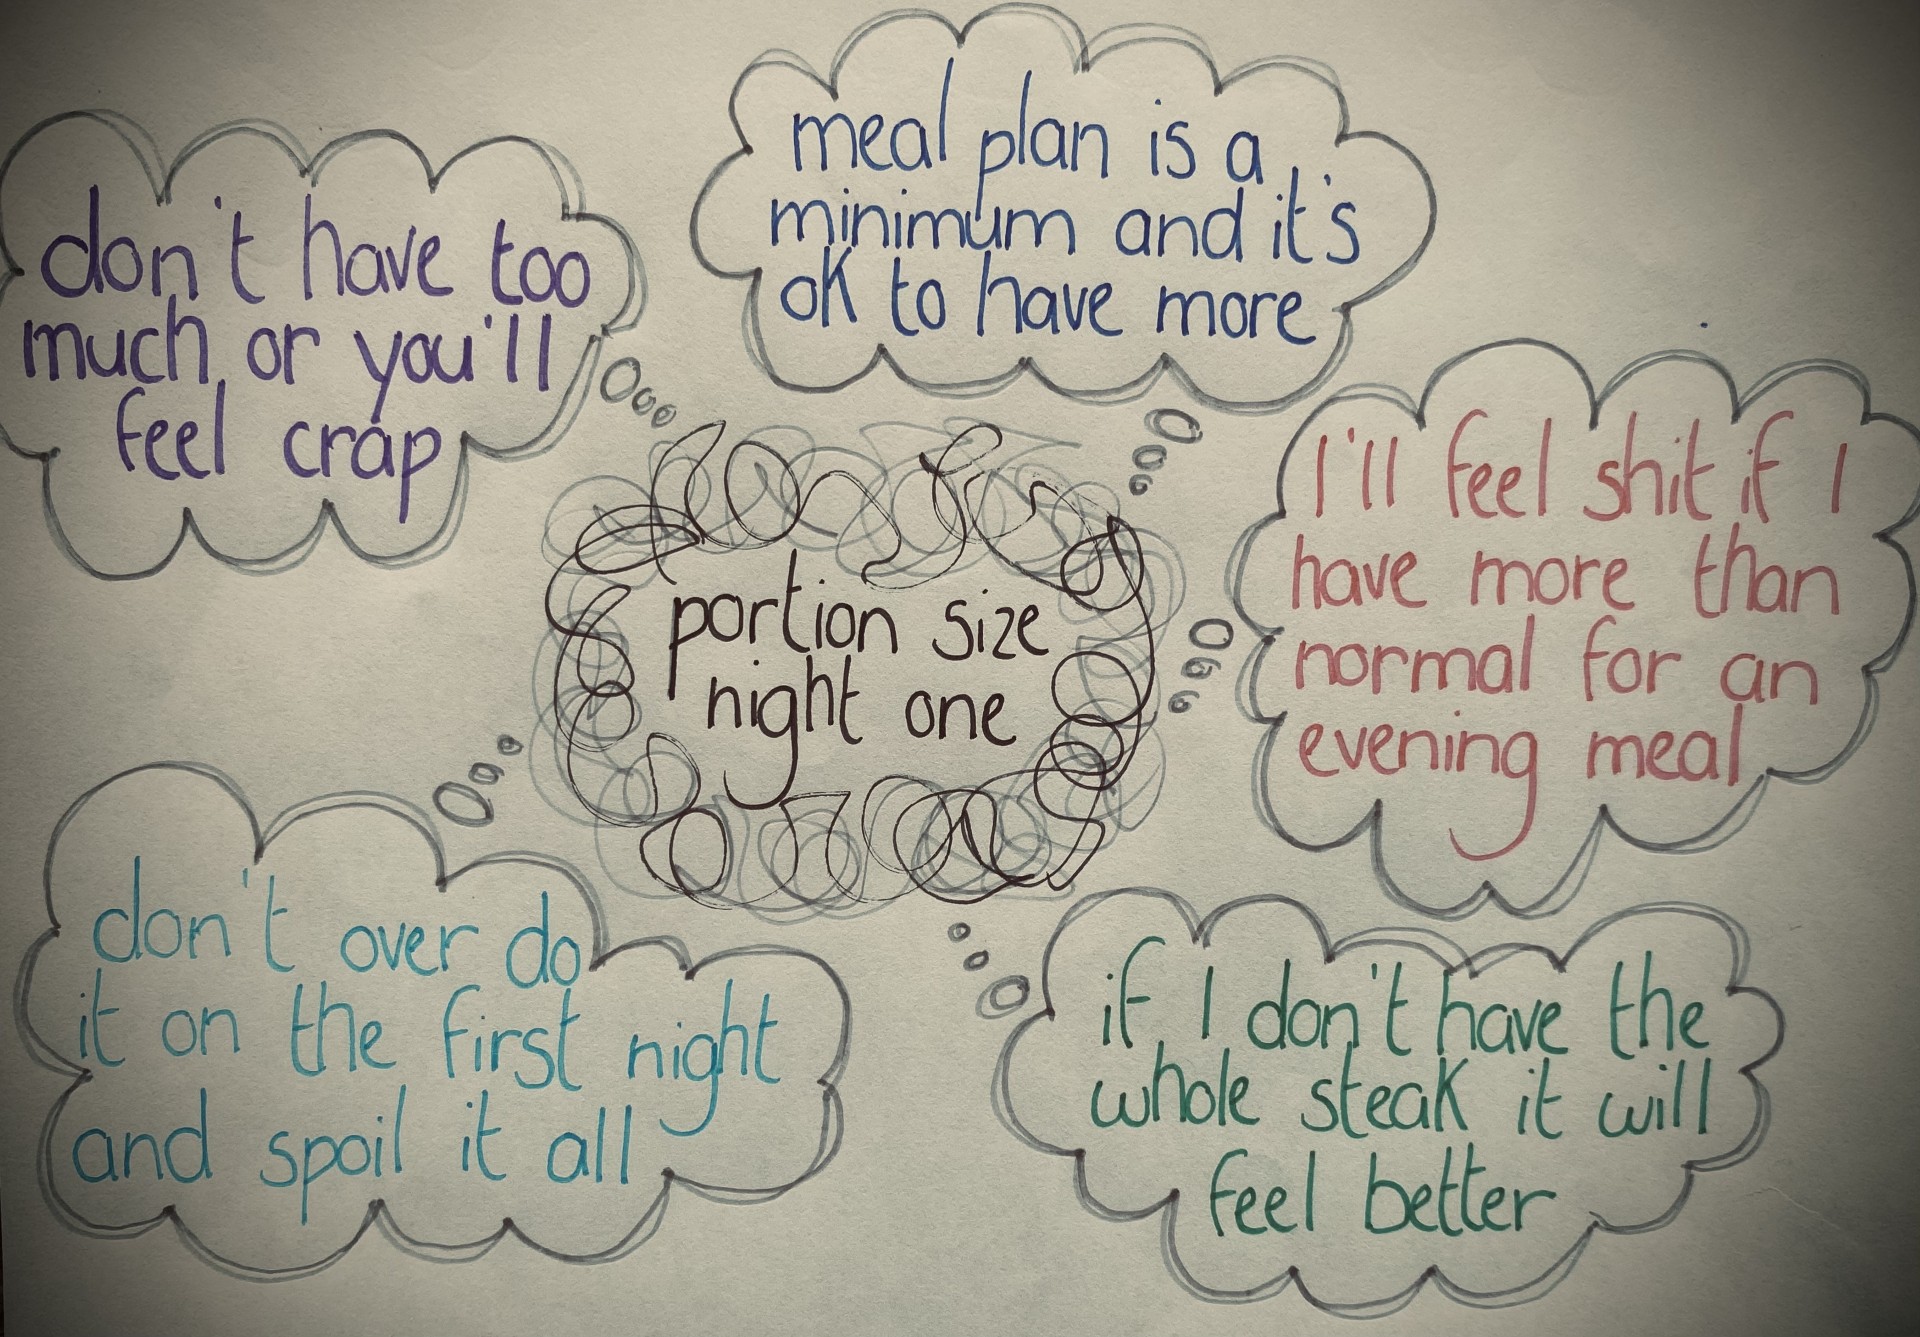 meal plan is a
minimum and it's
ok to have more
don't have too
much or you'll
feel crap
I'll feel shit if I
have more than
normal for an
evening meal
portion size
night one
don't over do
it on the first night
and spoil it all
if I don't have the
whole steak it will
feel better